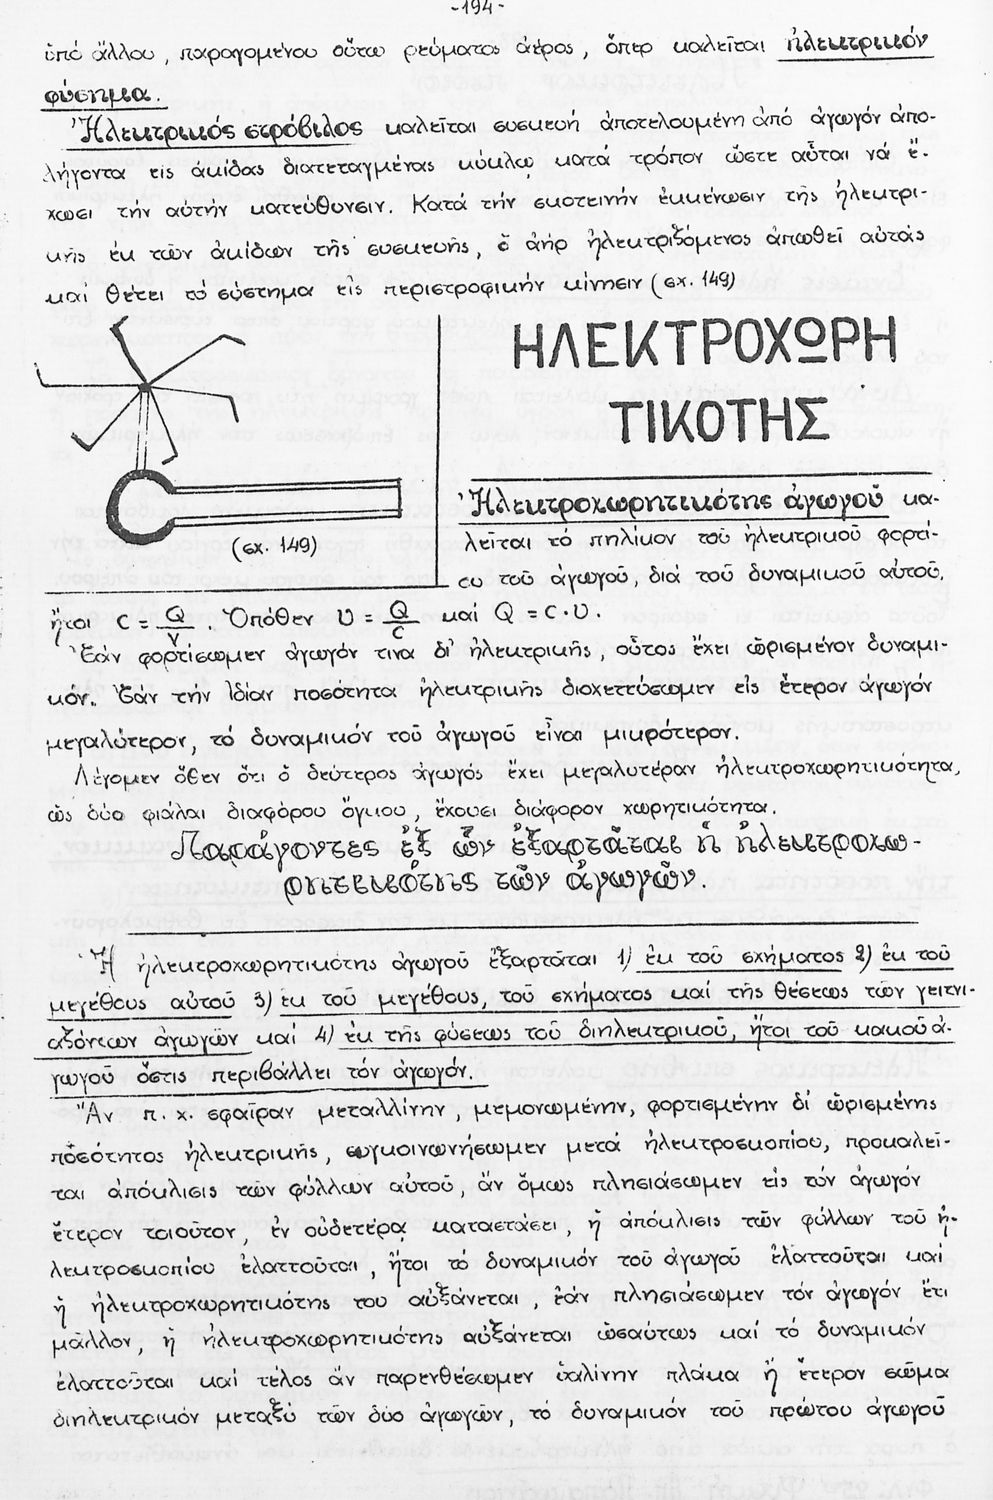 -194-
ὑπό ἄλλου, παραγομένου οὕτω ρεύματος ἀέρος, ὅπερ καλεῖται ἠλεκτρικόν
φύσημα.
Ἠλεκτρικός στρόβιλος καλεῖται συσκευή ἀποτελουμένη ἀπό ἀγωγόν ἀπο-
λήγοντα εἰς ἀκίδας διατεταγμένας κύκλῳ κατά τρόπον ὥστε αὗται νά ἔ-
χωσι τήν αὐτήν κατεύθυνσιν. Κατά τήν σκοτεινήν ἐκκένωσιν τῆς ἠλεκτρι-
κῆς ἐκ τῶν ἀκίδων τῆς συσκευῆς, ὁ ἀήρ ἠλεκτριζόμενος ἀπωθεῖ αὐτάς
καί θέτει τό σύστημα εἰς περιστροφικήν κίνησιν (σχ. 149)
ΗΛΕΚΤΡΟΧΩΡΗ
ΤΙΚΟΤΗΣ
(σχ. 149)
Ἠλεκτροχωρητικότης ἀγωγοῦ κα-
λεῖται τό πηλίκον τοῦ ἠλεκτρικοῦ φορτί-
ου τοῦ ἀγωγοῦ, διά τοῦ δυναμικοῦ αὐτοῦ,
ἤτοι c = Q/v. Ὁπόθεν υ = Q/c καί Q = c·υ.
Ἐάν φορτίσωμεν ἀγωγόν τινα δι' ἠλεκτρικῆς, οὗτος ἔχει ὡρισμένον δυναμι-
κόν. Ἐάν τήν ἰδίαν ποσότητα ἠλεκτρικῆς διοχετεύσωμεν εἰς ἕτερον ἀγωγόν
μεγαλύτερον, τό δυναμικόν τοῦ ἀγωγοῦ εἶναι μικρότερον.
Λέγομεν ὅθεν ὅτι ὁ δεύτερος ἀγωγός ἔχει μεγαλυτέραν ἠλεκτροχωρητικότητα,
ὡς δύο φιάλαι διαφόρου ὄγκου, ἔχουσι διάφορον χωρητικότητα.
Παράγοντες ἐξ ὧν ἐξαρτᾶται ἡ ἠλεκτροχω-
ρητικότης τῶν ἀγωγῶν.
Ἡ ἠλεκτροχωρητικότης ἀγωγοῦ ἐξαρτᾶται 1) ἐκ τοῦ σχήματος 2) ἐκ τοῦ
μεγέθους αὐτοῦ 3) ἐκ τοῦ μεγέθους, τοῦ σχήματος καί τῆς θέσεως τῶν γειτνι-
αζόντων ἀγωγῶν καί 4) ἐκ τῆς φύσεως τοῦ διηλεκτρικοῦ, ἤτοι τοῦ κακοῦ ἀ-
γωγοῦ ὅστις περιβάλλει τόν ἀγωγόν.
Ἄν π.χ. σφαῖραν μεταλλίνην, μεμονωμένην, φορτισμένην δι' ὡρισμένης
ποσότητος ἠλεκτρικῆς, συγκοινωνήσωμεν μετά ἠλεκτροσκοπίου, προκαλεῖ-
ται ἀπόκλισις τῶν φύλλων αὐτοῦ, ἄν ὅμως πλησιάσωμεν εἰς τόν ἀγωγόν
ἕτερον τοιοῦτον, ἐν οὐδετέρᾳ καταστάσει, ἡ ἀπόκλισις τῶν φύλλων τοῦ ἠ-
λεκτροσκοπίου ἐλαττοῦται, ἤτοι τό δυναμικόν τοῦ ἀγωγοῦ ἐλαττοῦται καί
ἡ ἠλεκτροχωρητικότης του αὐξάνεται, ἐάν πλησιάσωμεν τόν ἀγωγόν ἔτι
μᾶλλον, ἡ ἠλεκτροχωρητικότης αὐξάνεται ὡσαύτως καί τό δυναμικόν
ἐλαττοῦται καί τέλος ἄν παρενθέσωμεν ὑαλίνην πλάκα ἤ ἕτερον σῶμα
διηλεκτρικόν μεταξύ τῶν δύο ἀγωγῶν, τό δυναμικόν τοῦ πρώτου ἀγωγοῦ